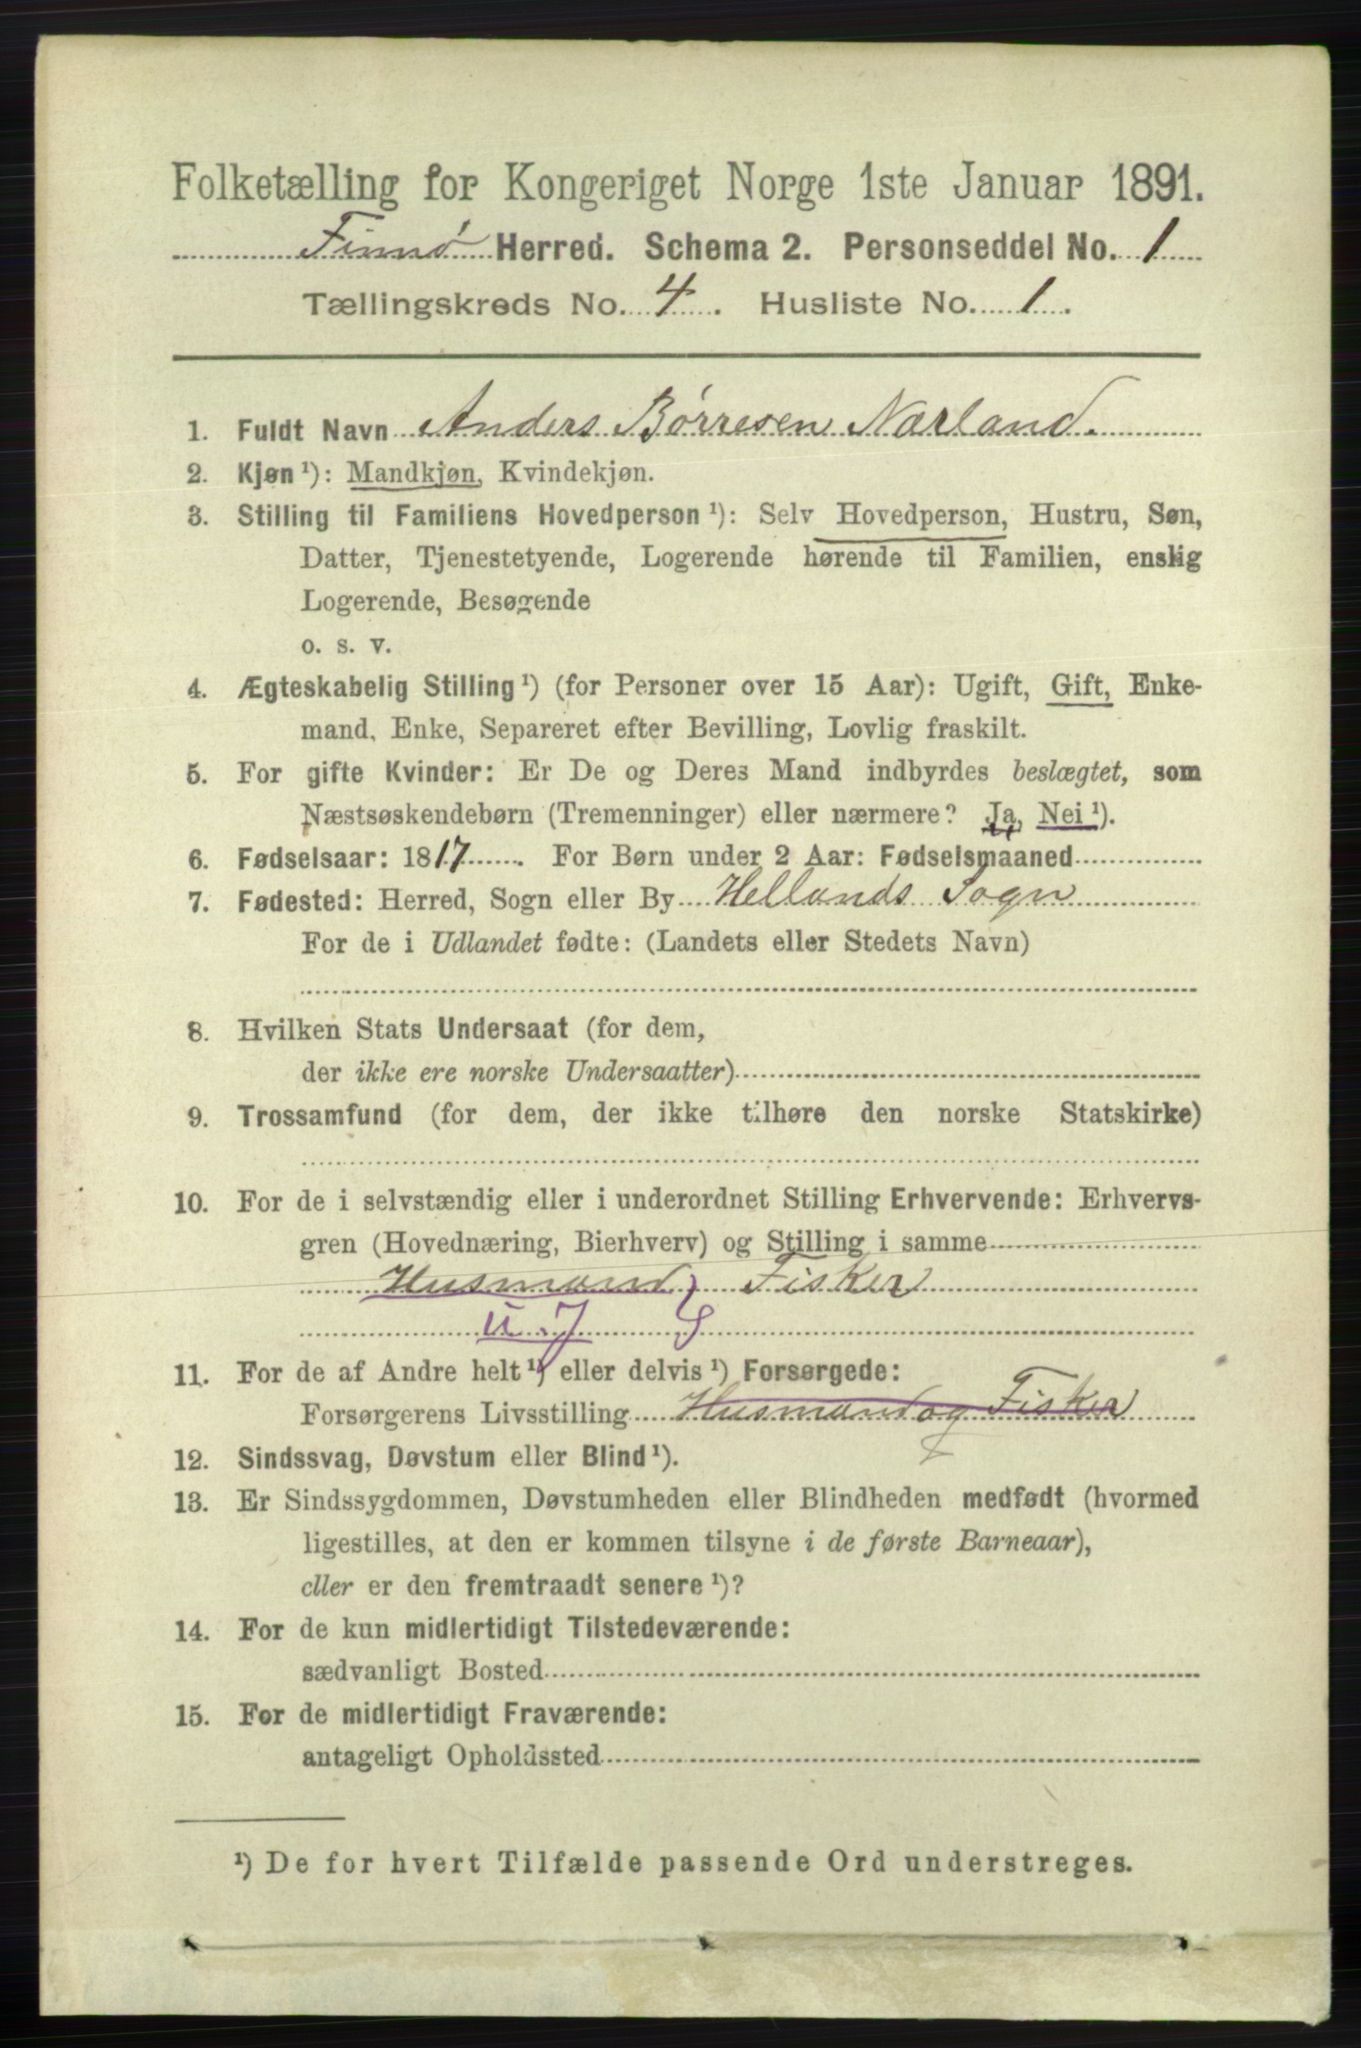 Folketælling for Kongeriget Norge 1ste Januar 1891.
Finnø Herred. Schema 2. Personseddel No. 1
Tællingskreds No. 4. Husliste No. 1.
1. Fuldt Navn Anders Børresen Nærland.
2. Kjøn ¹): Mandkjøn, Kvindekjøn.
3. Stilling til Familiens Hovedperson ¹): Selv Hovedperson, Hustru, Søn,
Datter, Tjenestetyende, Logerende hørende til Familien, enslig
Logerende, Besøgende
o. s. v.
4. Ægteskabelig Stilling ¹) (for Personer over 15 Aar): Ugift, Gift, Enke-
mand, Enke, Separeret efter Bevilling, Lovlig fraskilt.
5. For gifte Kvinder: Er De og Deres Mand indbyrdes beslægtet, som
Næstsøskendebørn (Tremenninger) eller nærmere? Ja, Nei ¹).
6. Fødselsaar: 1817. For Børn under 2 Aar: Fødselsmaaned
7. Fødested: Herred, Sogn eller By Hellands Sogn
For de i Udlandet fødte: (Landets eller Stedets Navn)
8. Hvilken Stats Undersaat (for dem,
der ikke ere norske Undersaatter)
9. Trossamfund (for dem, der ikke tilhøre den norske Statskirke)
10. For de i selvstændig eller i underordnet Stilling Erhvervende: Erhvervs-
gren (Hovednæring, Bierhverv) og Stilling i samme
Husmand Fisker
u. J S
11. For de af Andre helt ¹) eller delvis ¹) Forsørgede:
Forsørgerens Livsstilling Husmand og Fisker
12. Sindssvag, Døvstum eller Blind ¹).
13. Er Sindssygdommen, Døvstumheden eller Blindheden medfødt (hvormed
ligestilles, at den er kommen tilsyne i de første Barneaar),
eller er den fremtraadt senere ¹)?
14. For de kun midlertidigt Tilstedeværende:
sædvanligt Bosted
15. For de midlertidigt Fraværende:
antageligt Opholdssted
¹) De for hvert Tilfælde passende Ord understreges.